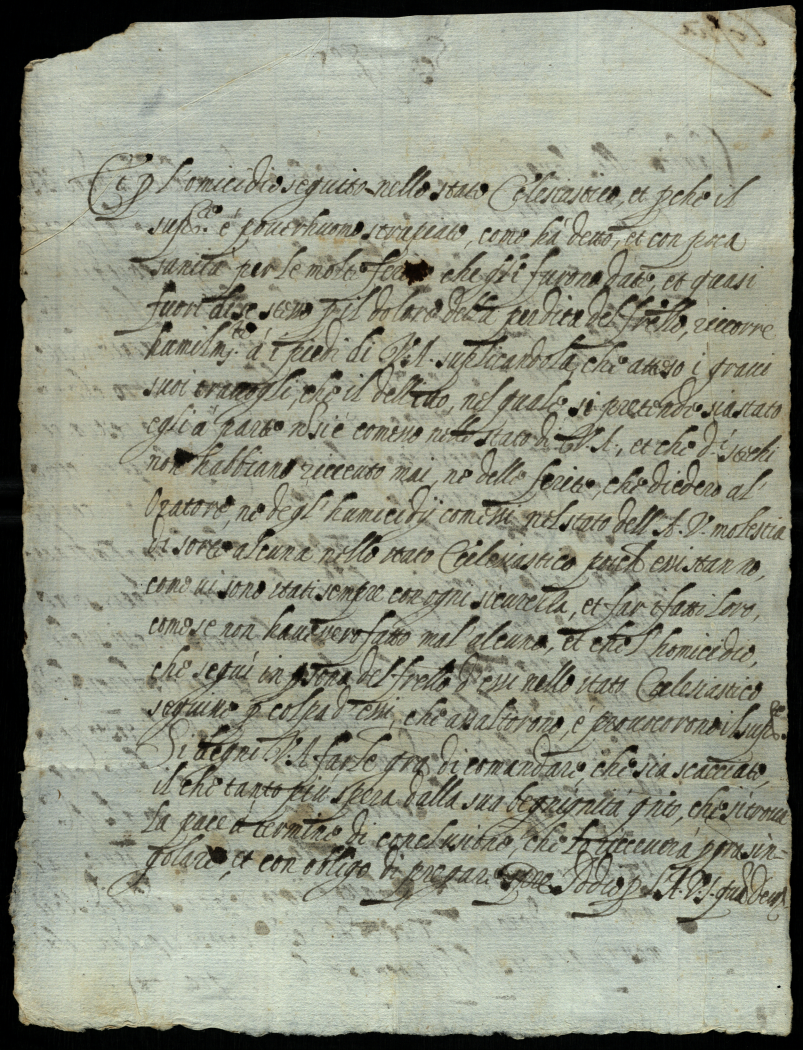 Et p l'omicidio seguito nello stato Eclesiastico, et pche il
supte é pouerhuomo stropiato, como há detto, et con poca
sanitá per le molte ferite che gli furono date, et quasi
fuori di se stesso p il dolore della perdita del frello, ricorre
humilmte á i piedi di V.A. suplicandola, che atteso i graui
suoi trauagli, che il delitto, nel quale si pretende sia stato
egli á parte nō si é comesso nello stato di V.A., et che d.i
non habbiano riceuuto mai, ne delle ferite, che diedero al'
Oratore, ne degl' humicidij comessi nel stato dell'A.V. molestia
di sorte alcuna nello stato Eclesiastico, poich essi stanno,
como ui sono stati sempre con ogni sicurezza, et far i fatti loro,
come se non hauessero fatto mal' alcuno, et che l'homicidio,
che seguí in psona del frello d'essi nello stato Eclesiastico
seguisse p colpa d'essi, che assaltorono, e prouocorono il supte.
Si degni V.A. farle gra di comandare, che sia scacciato,
il che tanto piú spera dalla sua begnignitá qnto, che si troua
la pace á termine di conclusione, che lo riceuerá p gra sin=
golare, et con obligo di pregare sempre Iddio p l'A.V. Qua Deus